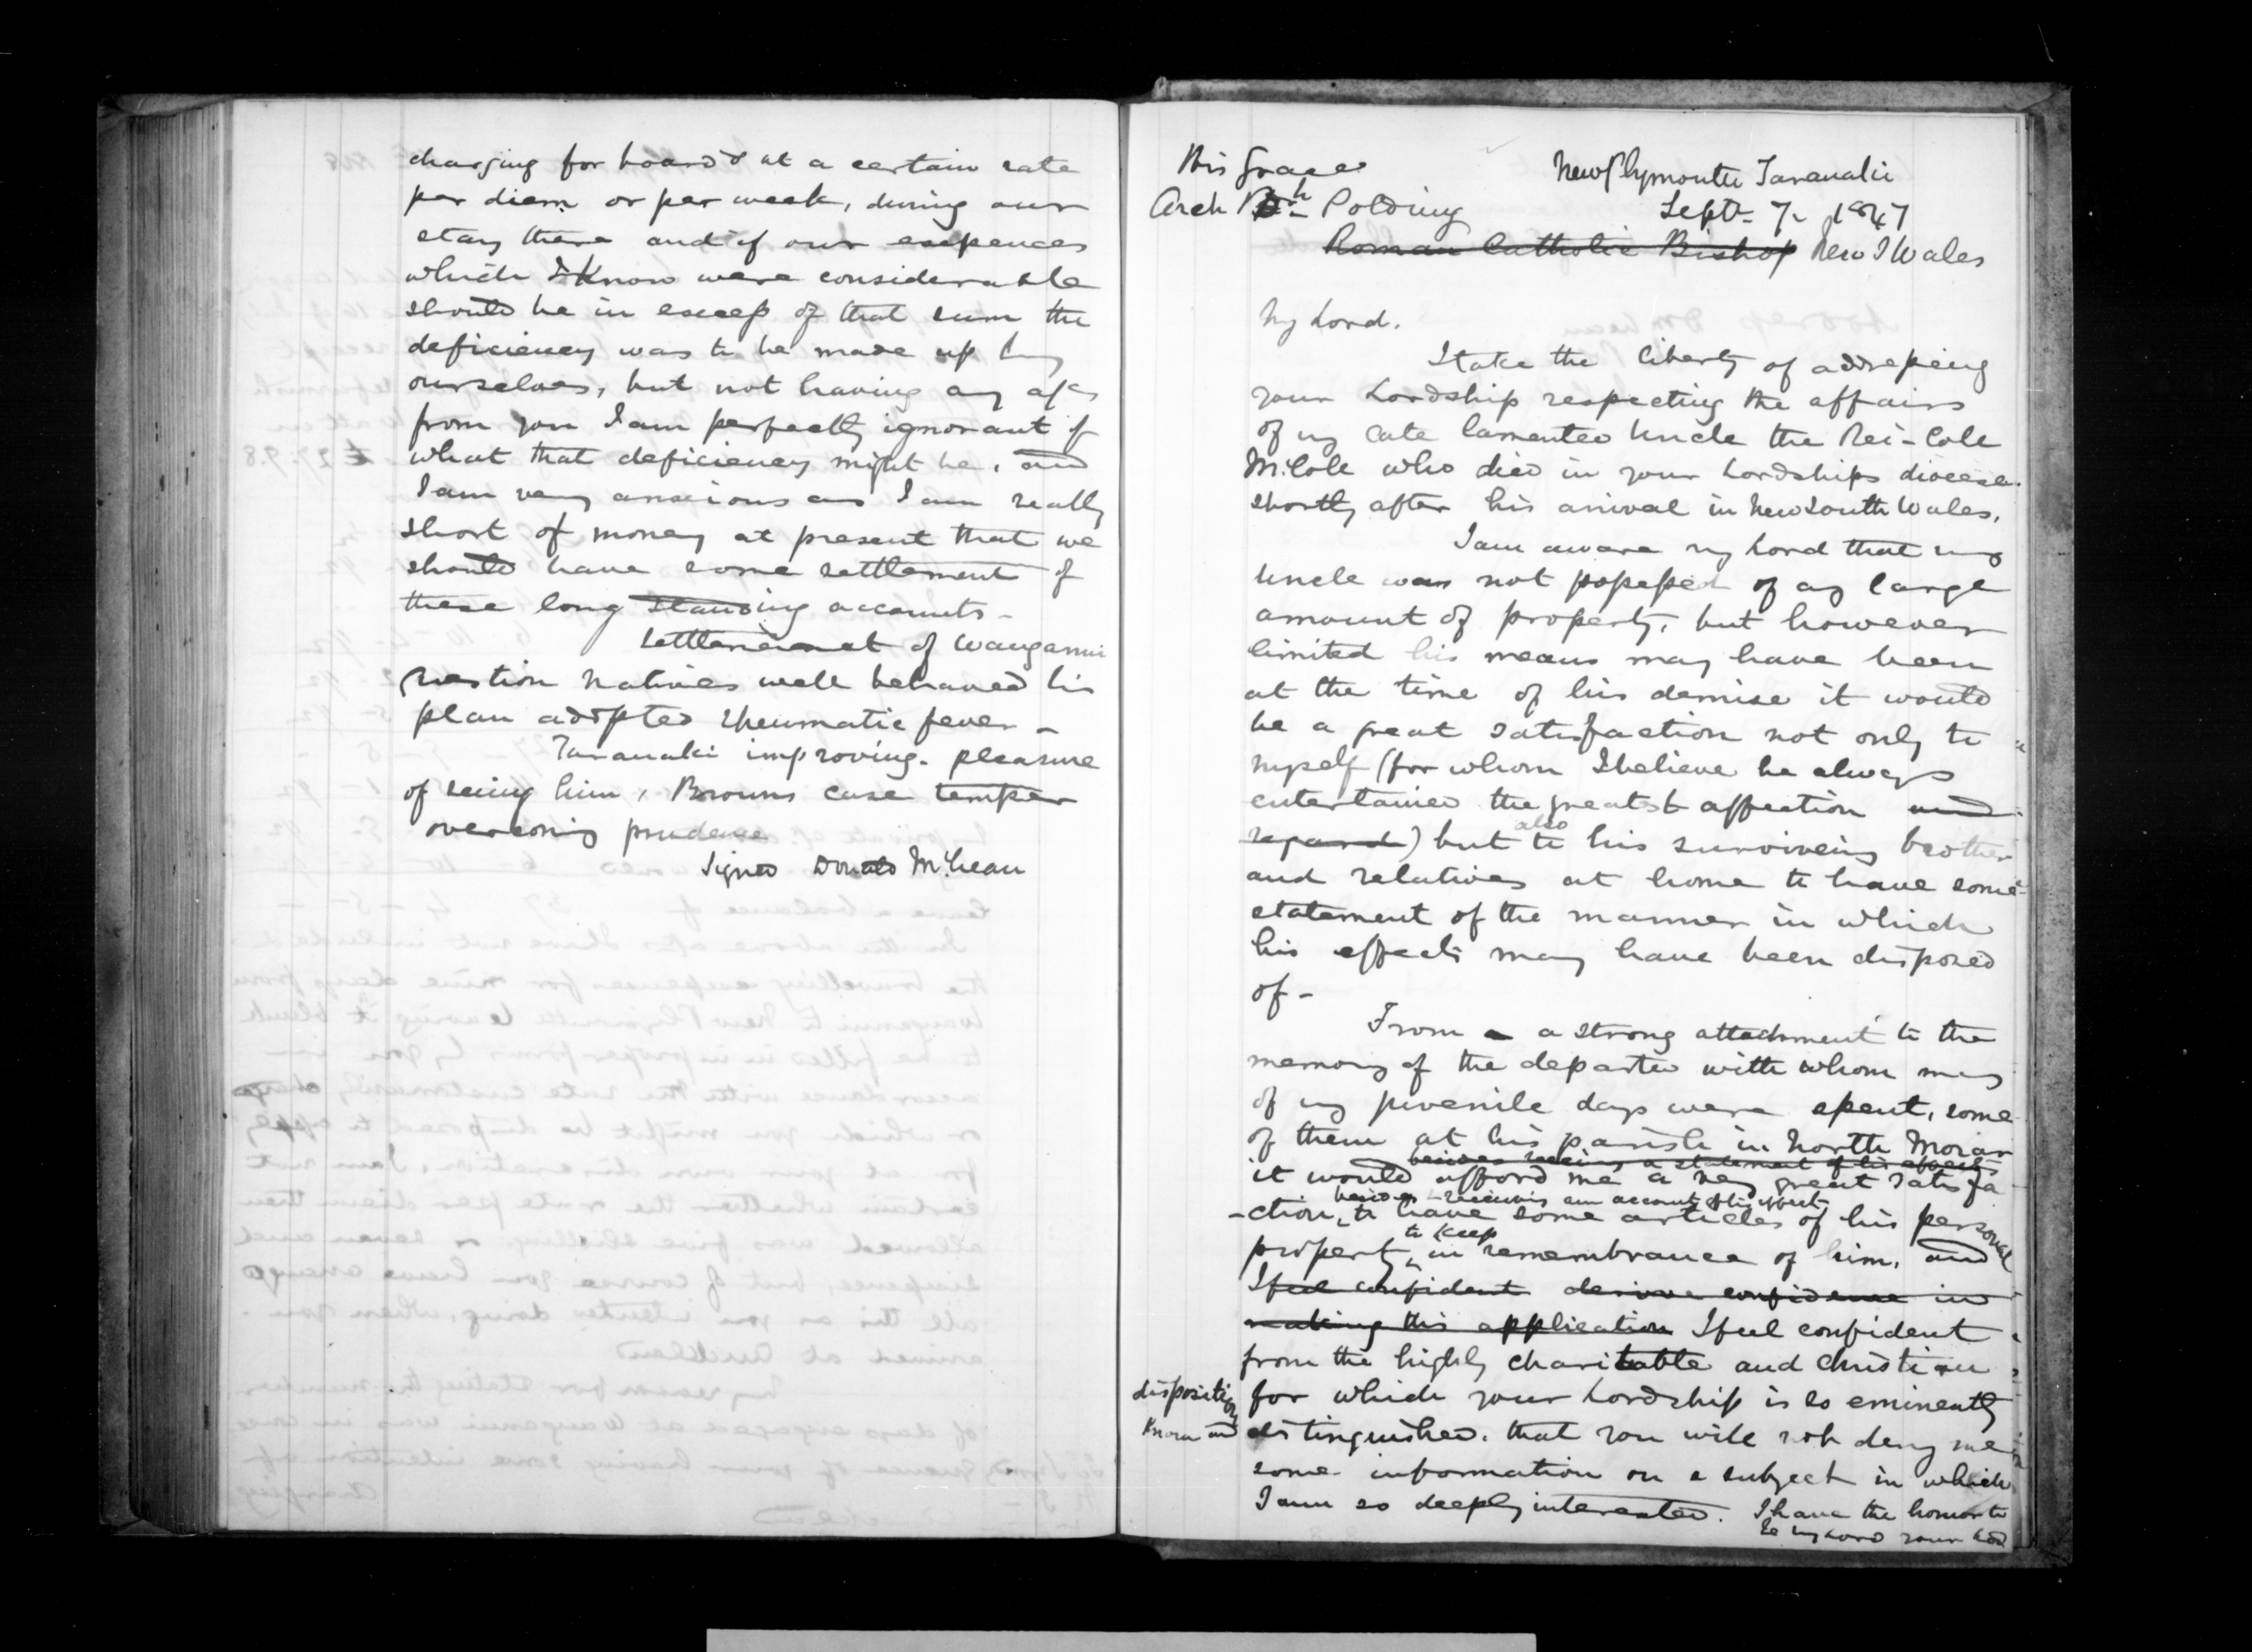 charging for board & at a certain rate
per diem or per week, during our
stay there and if our exepences
which I know were considerable
should be in excess of that sum the
deficiency was to be made up by
ourselves, but not having any a/cs
from you I am perfectly ignorant of
what that deficiency might be, and
I am very anxious as I am really
short of money at present that we
should have some settlement of
these long standing accounts -
Settlement of Wanganui
question natives well behaved his
plan adopted rheumatic fever -
Taranaki improving. pleasure
of seeing him, Browns case temper
overcoming prudence
Signed Donald McLean
His Grace
New Plymouth Taranaki
Arch Bh Polding
Septr 7. 1847
Roman Catholic Bishop New S Wales
My Lord.
I take the liberty of addressing
your Lordship respecting the affairs
of my late lamented Uncle the Rev-Cole
McCole who died in your Lordships diocese.
shortly after his arival in New South Wales.
I am aware my Lord that my
Uncle was not possessed of any large
amount of property, but however
limited his means may have been
at the time of his demise it would
be a great satisfaction not only to
myself (for whom I believe he always
entertained the greatest affection and
regard) but to also his surviveing brother
and relatives at home to have some
statement of the manner in which
his effects may have been disposed
of -
From a strong attachment to the
memory of the departed with whom many
of my juvenile days were spent, some
of them at his parish in North Morar
besides receiving a statement of his effects
it would afford me a very great satisfa
besides receiving an account of his effects
-ction, to have some articles of his personal
to keep
property in remembrance of him, and
I feel confident derive confidence in
making this application I feel confident
from the highly charitable and christian
disposition for which your Lordship is so eminently
known and distinguished. that you will not deny me
some information on a subject in which
I am so deeply interested. I have the honor to
be my Lord your